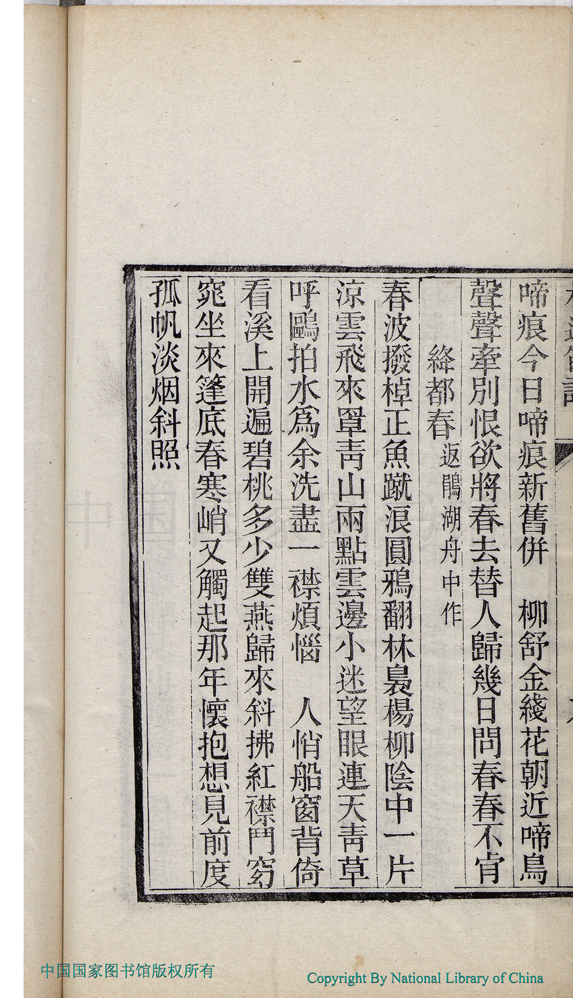 啼痕今日啼痕新舊併　柳舒金綫花朝近啼鳥
聲聲牽別恨欲將春去替人歸幾日問春春不肯
絳都春返鵑湖舟中作
春波撥棹正魚蹴浪圓鴉翻林裊楊柳陰中一片
涼雲飛來罩靑山兩點雲邊小迷望眼連天靑草
呼鷗拍水爲余洗盡一襟煩惱　人悄船窗背倚
看溪上開遍碧桃多少雙燕歸來斜拂紅襟鬥窈
窕坐來篷底春寒峭又觸起那年懷抱想見前度
孤帆淡烟斜照
中国国家图书馆版权所有
Copyright By National Library of China